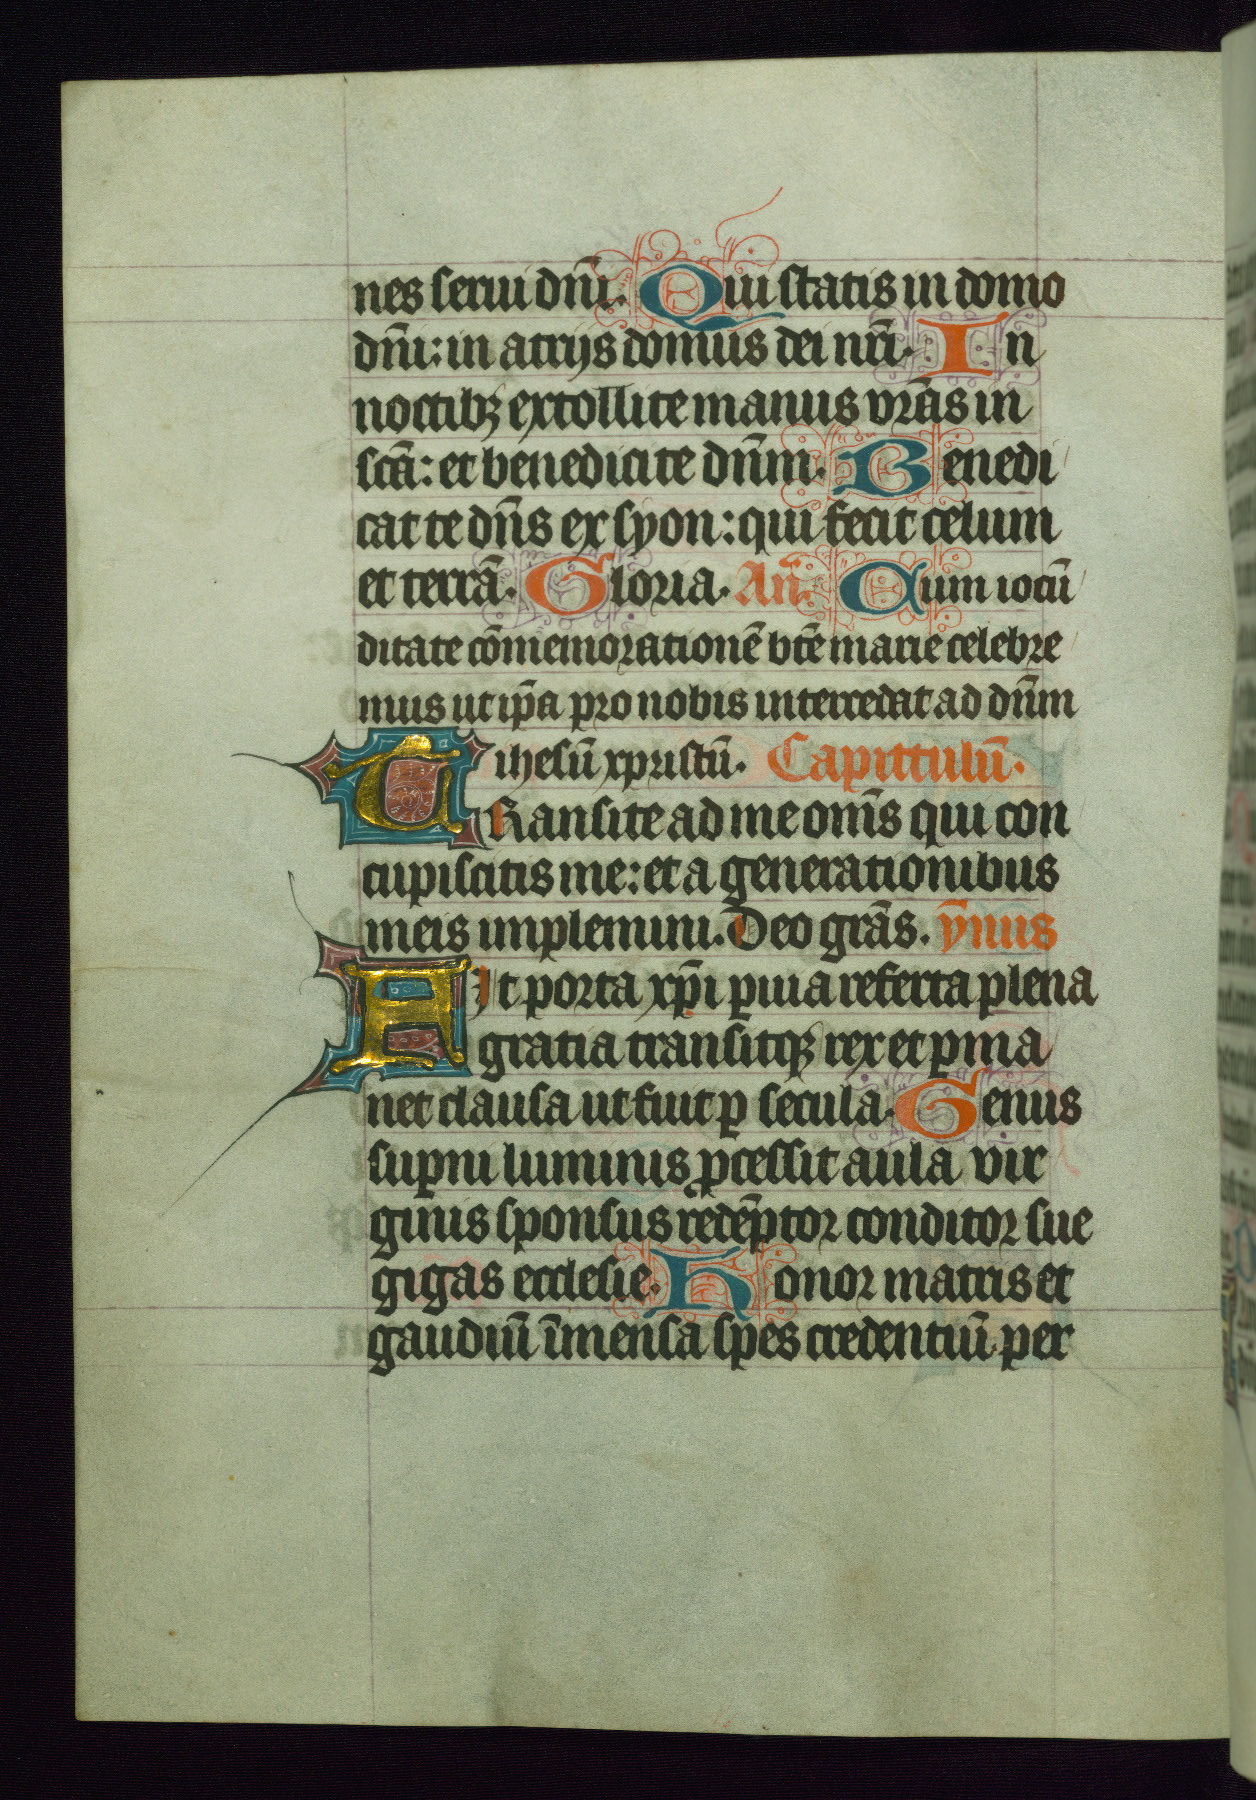 nes serui dñi. Qui statis in domo
dñi: in atrijs domus dei nr̄i. In
noctibꝫ extollite manus vr̄as in
sc̄a: et benedicite dn̄m. Benedi
cat te dn̄s ex syon: qui fecit celum
et terrā. Gloria. An̄. Cum iocū
ditate cōmemorationē bt̄e marie celebre
mus ut ip̄a pro nobis intercedat ad dn̄m
ihesū xpristū. Capittulū.
TRansite ad me om̄s qui con
cupiscitis me: et a generationibus
meis implemini. Deo gr̄as. ȳnus
FIt porta xp̄i ꝑuia referta plena
gratia transitqꝫ rex et ꝑma
net clausa ut fuit ꝑ secula. Genus
suꝑni luminis ꝓcessit aula vir
ginis sponsus redēptor conditor sue
gigas ecclesie. Honor matris et
gaudiū īmensa spes credentiū per